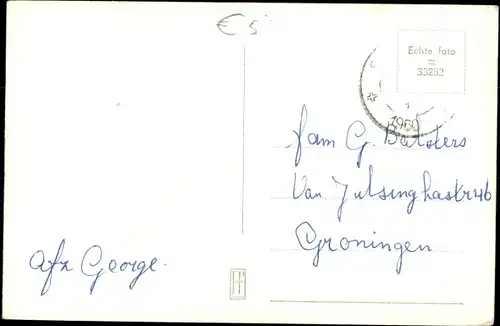 € 5
Echte foto
=
33252
1960
fam G. Barsters
Van Julsinghastr 46
Groningen
afz George.